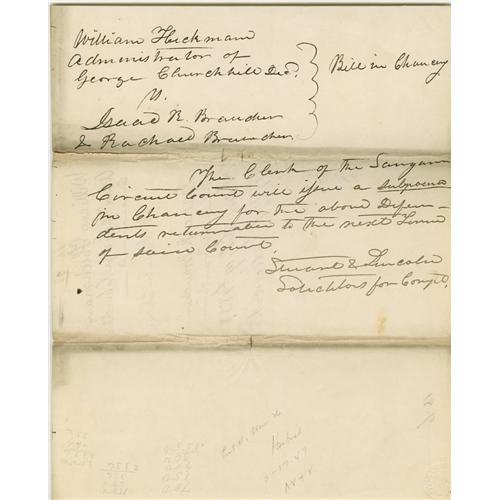 William Hickman
Administrator of
George Churchhill Decd.
V.
Isaac R. Brauden
& Rachael Brauden
Bill in Chancy
The Clerk of the Sangam
Circuit Court will issue a subpoena
in Chancery for the above Defen-
dents returnable to the next Term
of said Court.
Stuart & Lincoln
Solicitors for Compt.